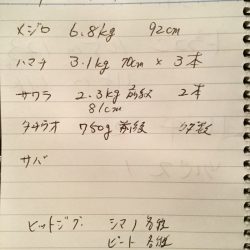 メジロ 6.8kg 92cm
ハマチ 3.1kg 70cm × 3本
サワラ 2.3kg前後 2本
81cm
タチウオ 750g前後 多数
サバ
ヒットジグ シマノ各種
ビート各種